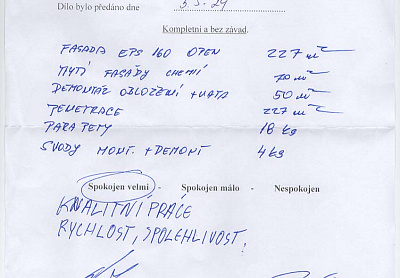 Dílo bylo předáno dne 3.5.24
Kompletní a bez závad.
FASADA EPS 160 OTEN 227 m²
MYTÍ FASÁDY CHEMIÍ 70 m²
DEMONTÁŽ OBLOŽENÍ + VATA 50 m²
PENETRACE 227 m²
PARAPETY 18 kg
SVODY MONT. + DEMONT 4 kg
Spokojen velmi - Spokojen málo - Nespokojen
KVALITNÍ PRÁCE
RYCHLOST, SPOLEHLIVOST,